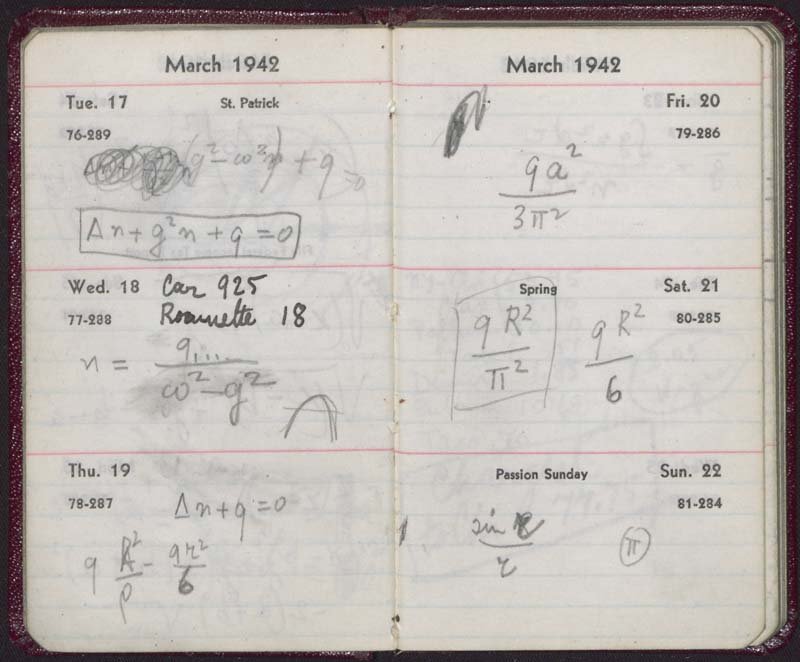 March 1942
Tue. 17 St. Patrick
76-289
(g² - ω²)n + q = 0
Δn + g²n + q = 0
Wed. 18 Car 925
77-288 Roomette 18
n = q.... / ω² - g²
Thu. 19
78-287 Δn + q = 0
q R²/ρ - qr²/6
March 1942
Fri. 20
79-286
qa² / 3π²
Spring Sat. 21
80-285
qR² / π² qR² / 6
Passion Sunday Sun. 22
81-284
sin r / r π